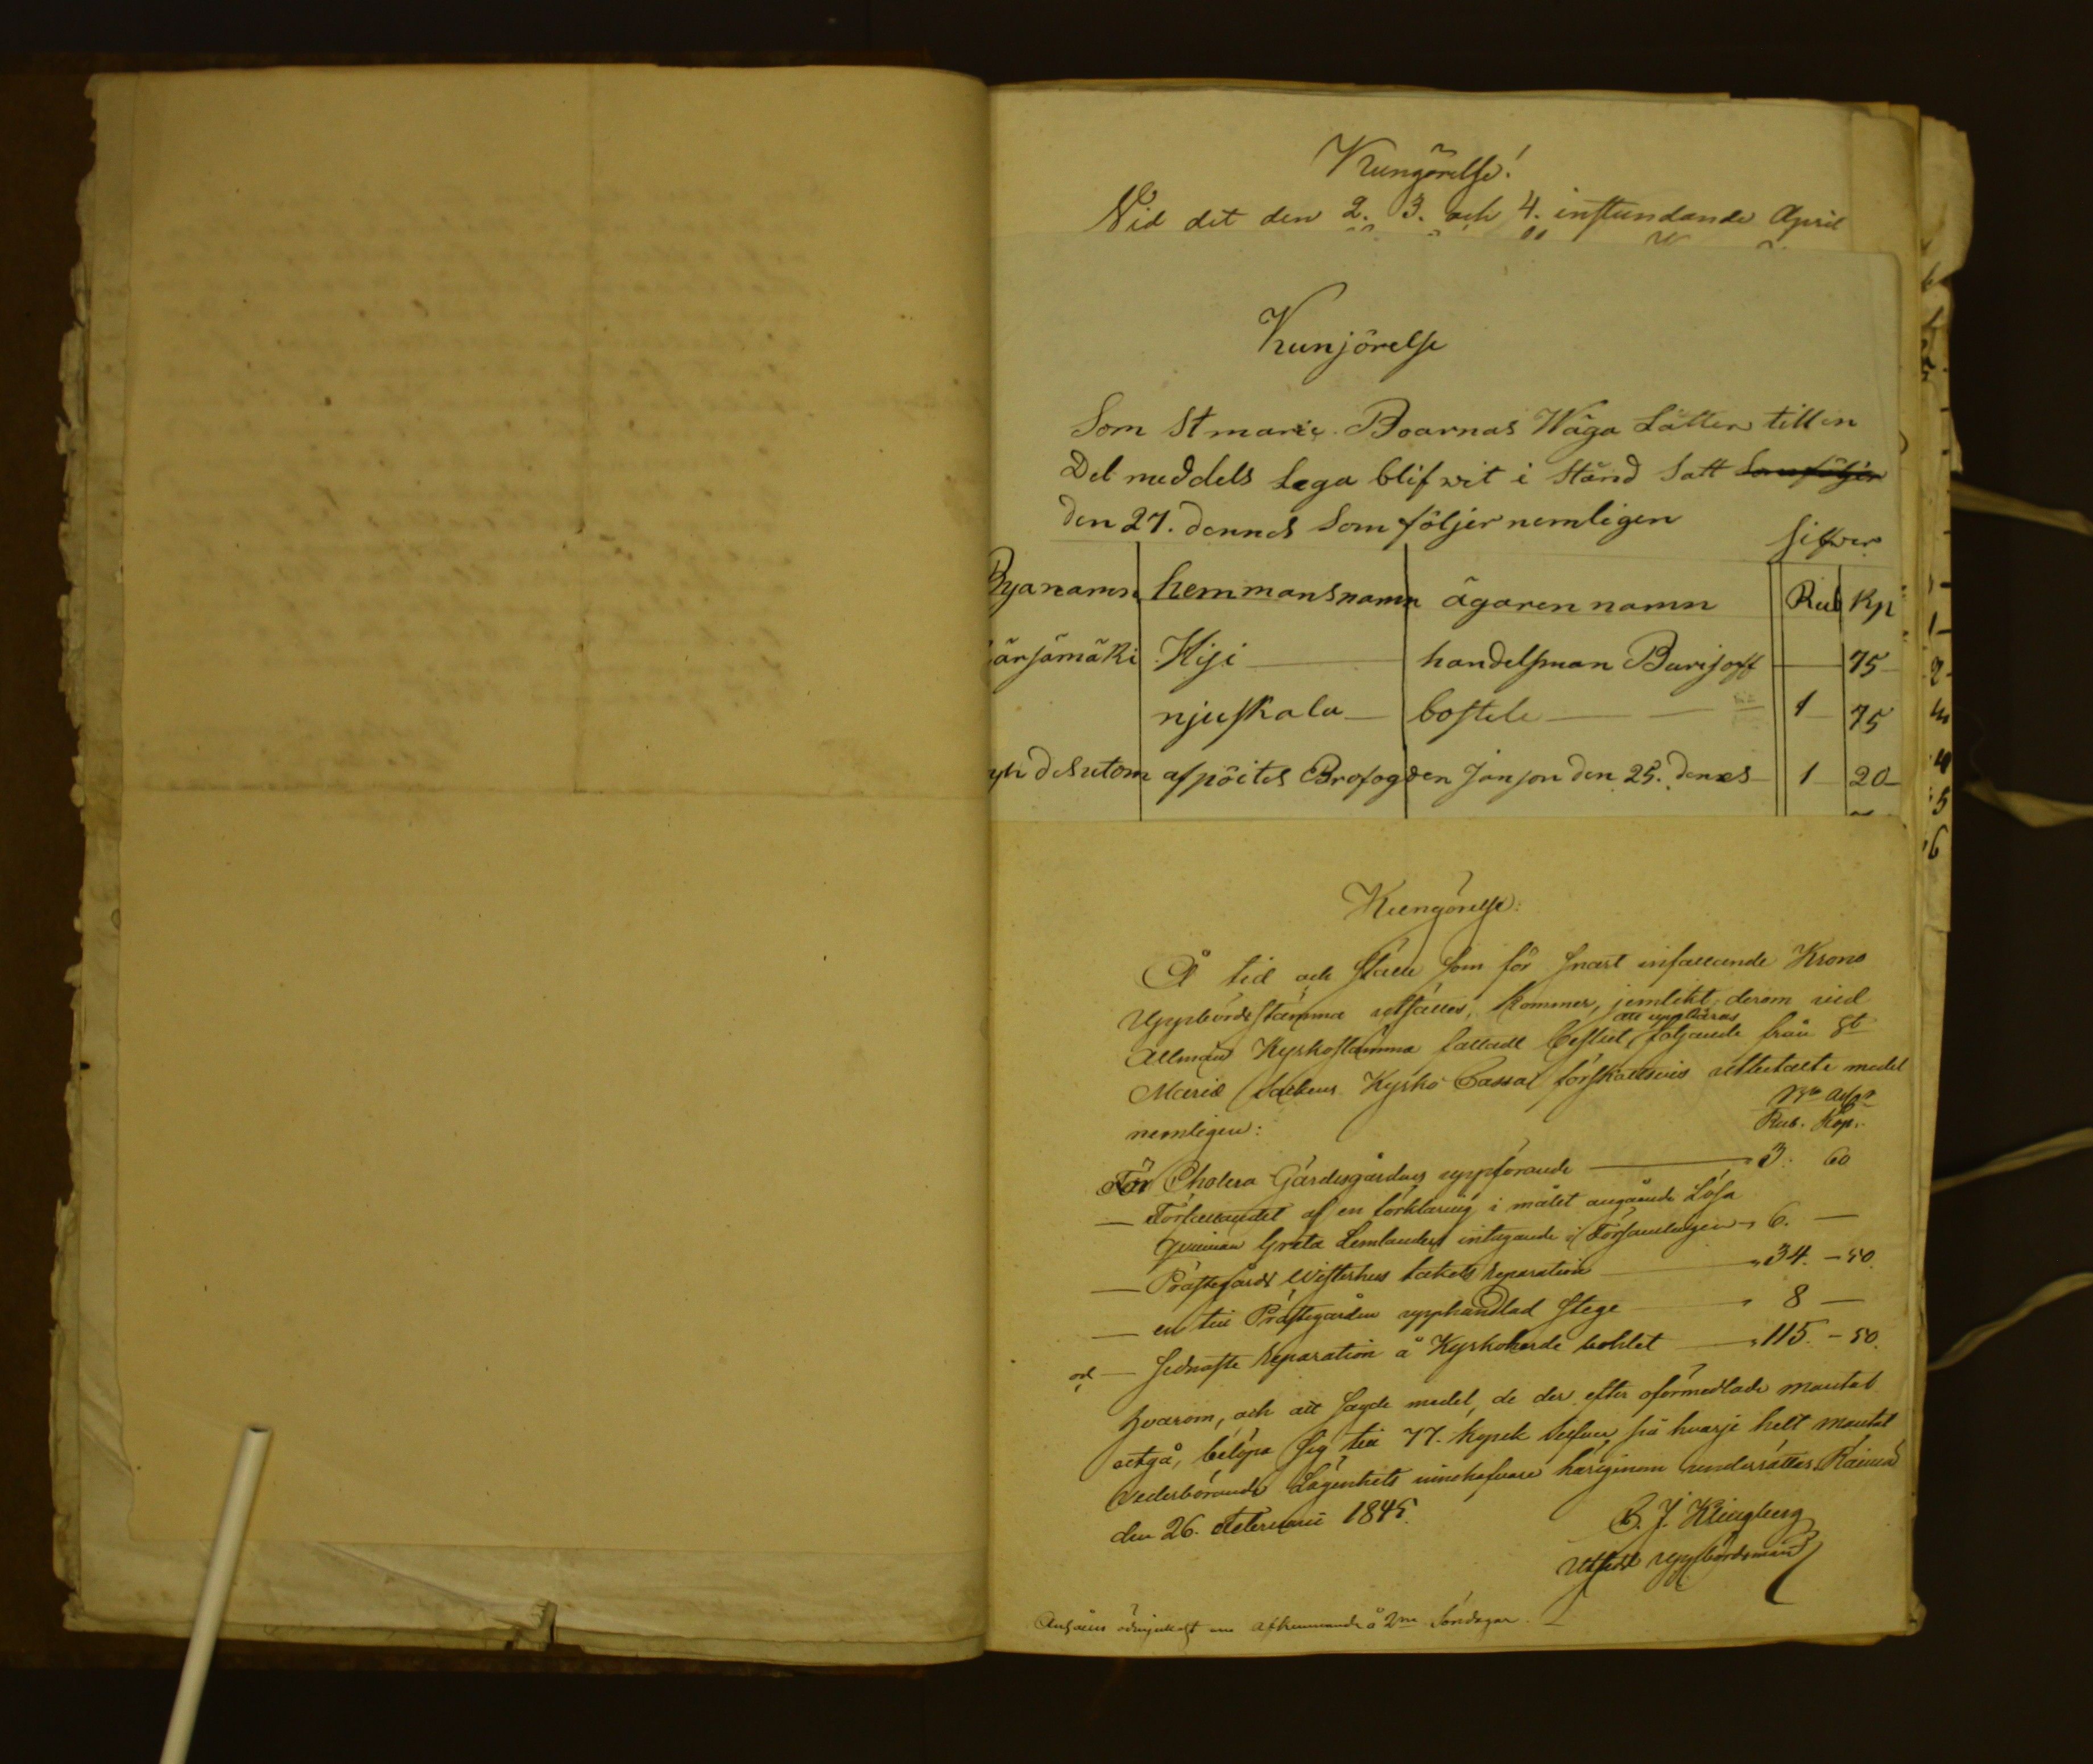 Kungörelse!
Vid det den 2. 3. och 4. instundande April
Kunjörelse
Som St marie Boarnas Wäga Lätter till in
Del meddels Lega blifwit i Stånd Satt Som följer
den 27. dennes Som följer nemligen
Silwer
Byanamn hemmansnamn ägaren namn Rub Kp
ärjämäki Hiji handelsman Burisoff 75
njuskala bostele 1 75
desutom Brofogden Janson den 25. denes 1 20
Kungörelse:
Å tid och ställe som för snart infallande Krono
Uppbördsstämma utsättes, kommer, jemlikt derom vid
att uppbäras
Allmän Kyrkostämma fattadt beslut, följande från St
Mariæ Sockens Kyrko Cassa förskottsvis utbetalte medel
nemligen:
Rub. Kop.
För Cholera Gärdesgårdens uppförande 3. 60
— Författandet af en förklaring i målet angående Lösa
qvinnan Greta Lemlanders intagande i Församlingen 6. —
— Prästegårds Wisthus takets reparation 34. — 50.
— en till Prästegården upphandlad Stege 8 —
och — Sednaste reparation å Kyrkoherde bohlet 115. — 50.
hvarom, och att sagde medel, de der efter oförmedlade mantal
utgå, belöpa sig till 77. kopek Silfver på hvarje helt mantal
vederbörande Lägenhets innehafvare härigenom underrättas. Raunå
den 26. Februarii 1845.
B. J. Klingberg
Utsedd Uppbördsman
ödmjukast om afkunnande å 2ne Söndagar.